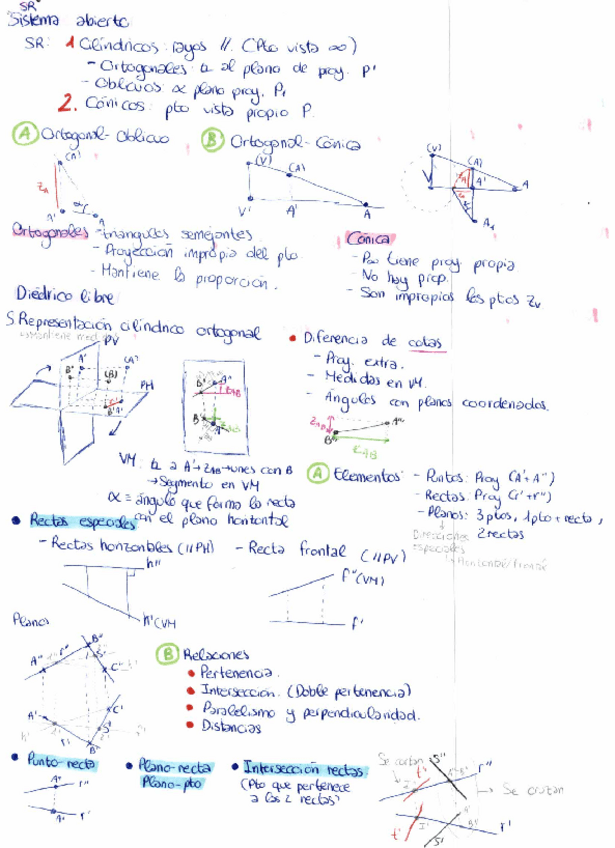 SR
Sistema abierto
SR: 1 Cilíndricos: rayos // (Pto vista ∞)
- Ortogonales: al plano de proy. P'
- Oblicuos: α plano proy. P₁
2. Cónicos: pto vista propio P.
A Ortogonal-Oblicuo
B Ortogonal-Cónica
(A)
A'
A
(V)
(A)
V'
A'
A
(V)
(A)
A'
A
Ortogonales - triangulos semejantes.
- Proyección impropia del pto.
- Mantiene la proporción.
Cónica
tiene proy propia
- No hay prop.
- Son impropios los ptos Zv
Diédrico libre
S. Representación cilíndrico ortogonal
PV
A'
(A)
B''
(B)
PH
B'A'
VM: a A'→ZAB→unes con B
→Segmento en VM
α = ángulo que forma la recta
con el plano horizontal
• Diferencia de cotas
- Proy. extra.
- Medidas en VM.
- Ángulos con planos coordenados.
A Elementos
- Puntos: Proy (A'+A'')
- Rectas: Proy (r'+r'')
- Planos: 3ptos, 1pto+recta,
2rectas
Direcciones
especiales
→Horizontal/frontal
• Rectas especiales
- Rectas horizontales (//PH)
- Recta frontal (//PV)
h''
h'(VM
f''(VM)
f'
Planos
A''
B''
S''
C''
A'
C'
S'
B'
r'
B Relaciones
• Pertenencia.
• Intersección. (Doble pertenencia)
• Paralelismo y perpendicularidad.
• Distancias
• Punto-recta
A''
r''
A'
r'
• Plano-recta
Plano-pto
• Intersección rectas:
(Pto que pertenece
a las 2 rectas)
Se cortan
t''
S''
r''
→ Se cruzan
I'
A'
B'
t'
S'
r'